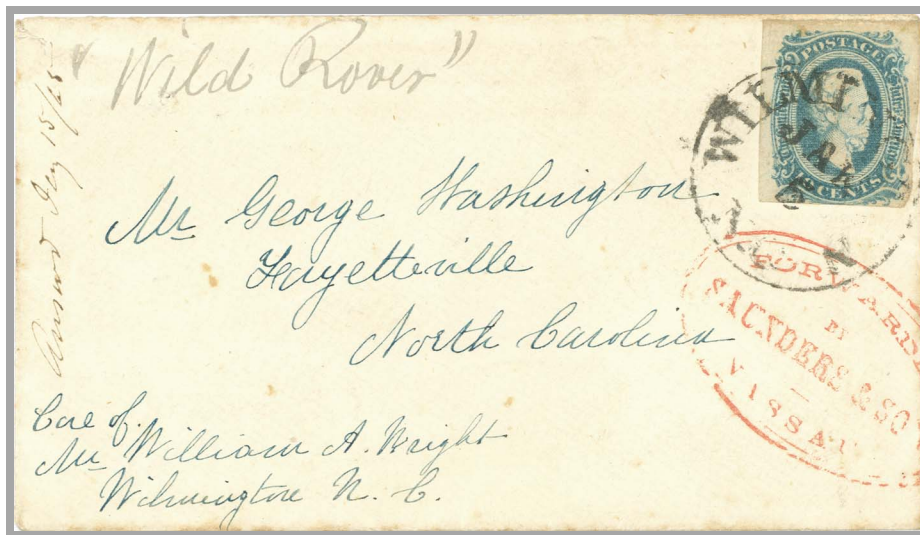 "Wild Rover"
POSTAGE
CENTS
WILMI
JAN
N
Mr George Washington
Fayetteville
North Carolina
FORWARD
BY
SAUNDERS & SO
NASSAU
Care of
Mr William A. Wright
Wilmington N. C.
Answd 15/65